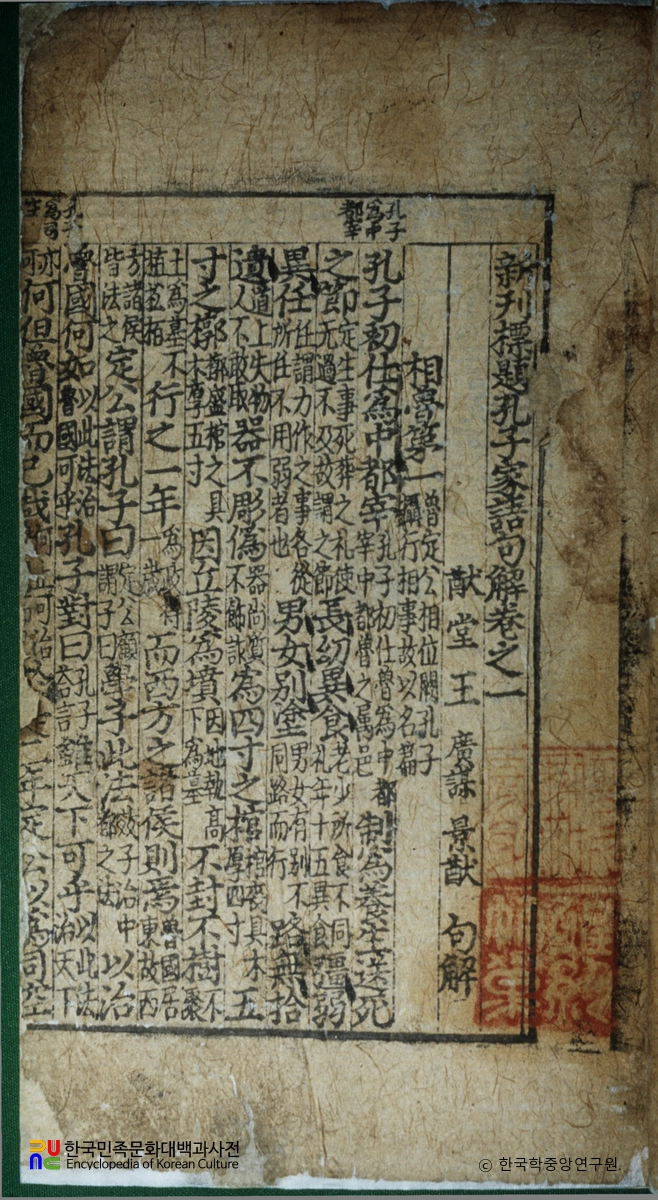 孔子
爲中
都宰
孔子
爲司
空
新刊標題孔子家語句解卷之一
猷堂 王 廣謀 景猷 句解
相魯第一 魯定公相位闕孔子攝行相事故以名篇
孔子初仕爲中都宰 孔子初仕魯爲中都宰中都魯之属邑 制爲養生送死
之節 定生事死葬之礼使无過不及故謂之節 長幼異食 老少所食不同礼年十五異食 彊弱
異任 任謂力作之事各從所任不用弱者也 男女別塗 男女有別不同路而行 路無拾
遺 道上失物人不敢取 器不彫僞 器尚質不飾詐 爲四寸之棺 棺喪具木厚四寸 五
寸之槨 槨盛棺之具木厚五寸 因丘陵爲墳 因地執高下爲墓 不封不樹 不聚
土爲墓不植松栢 行之一年 爲政得一歲 而西方之諸侯則焉 魯國居東故西
方諸侯皆法之 定公謂孔子曰 定公顧謂子曰 學子此法 效子治中都之法 以治
魯國何如 以此法治魯國可乎 孔子對曰 孔子答言 雖天下可乎 以此法治天下
亦可 何但魯國而已哉 二年定公以爲司空
한국민족문화대백과사전
Encyclopedia of Korean Culture
© 한국학중앙연구원